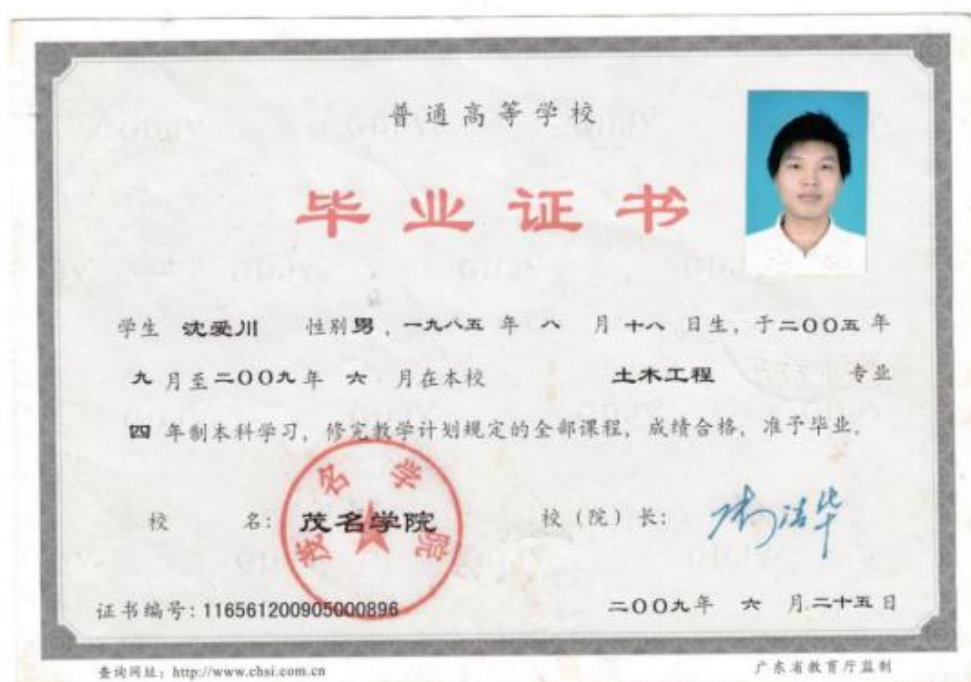 普通高等学校
毕业证书
学生 沈爱川 性别男，一九八五年 八 月十八 日生，于二〇〇五年
九 月至二〇〇九年 六 月在本校 土木工程 专业
四 年制本科学习，修完教学计划规定的全部课程，成绩合格，准予毕业。
校 名：茂名学院 校（院）长：
茂名学院
证书编号：116561200905000896 二〇〇九年 六 月二十五日
查询网址：http://www.chsi.com.cn 广东省教育厅监制